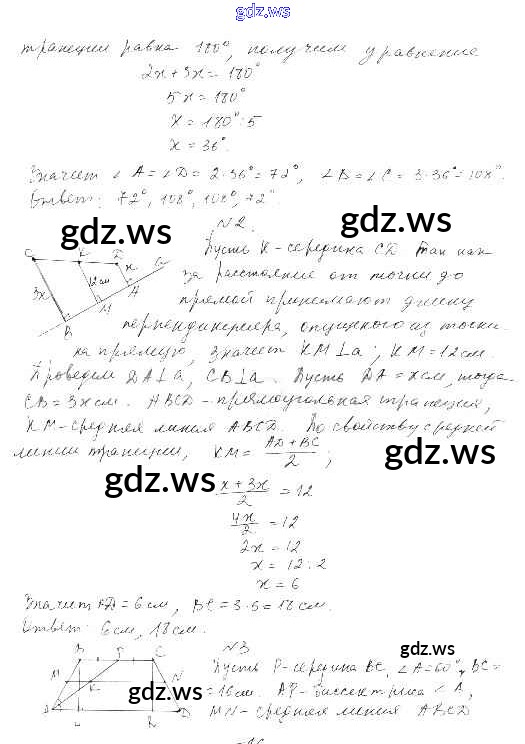 gdz.ws
трапеции равна 180°, получим уравнение
2x+3x=180°
5x=180°
x=180°:5
x=36°.
Значит ∠A=∠D=2·36°=72°, ∠B=∠C=3·36°=108°.
Ответ: 72°, 108°, 108°, 72°.
gdz.ws gdz.ws
N2.
C K D a
3x 12см x
B M A
Пусть K-середина CD. Так как
за расстояние от точки до
прямой принимают длину
перпендикуляра, опущенного из точки
на прямую, значит KM⊥a; KM=12см.
Проведем DA⊥a, CB⊥a. Пусть DA=xсм, тогда
CB=3xсм. ABCD-прямоугольная трапеция,
KM-средняя линия ABCD. По свойству средней
линии трапеции, KM= (AD+BC)/2 ;
gdz.ws gdz.ws
(x+3x)/2 =12
4x/2 =12
2x=12
x=12:2
x=6
Значит AD=6см, BC=3·6=18см.
Ответ: 6см, 18см.
N3
gdz.ws gdz.ws
B P C
M K N
A L R D
Пусть P-середина BC, ∠A=60°, BC=
=16см. AP-биссектриса ∠A,
MN-средняя линия ABCD